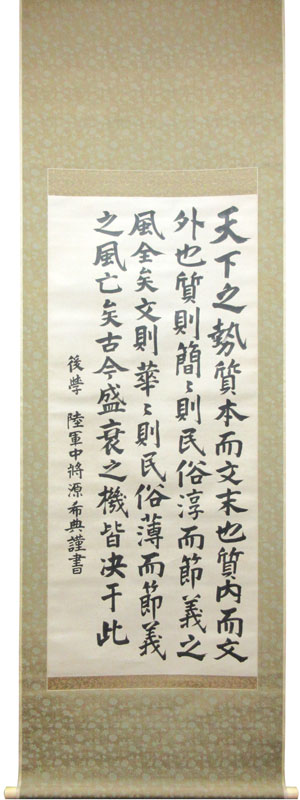 天下之勢質本而文末也質内而文
外也質則簡〻則民俗淳而節義之
風全矣文則華〻則民俗薄而節義
之風亡矣古今盛衰之機皆决于此
後学 陸軍中將源希典謹書